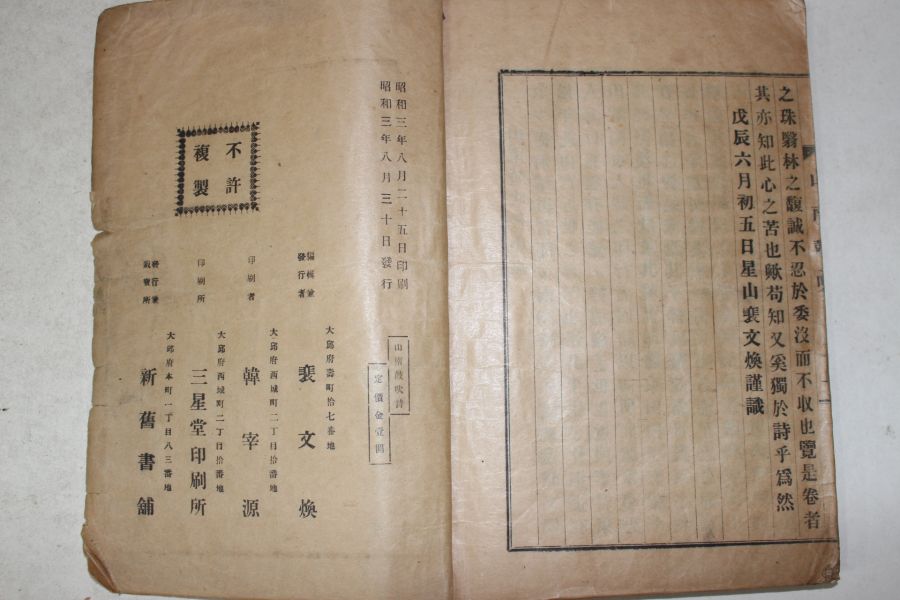 之珠翳林之馥誠不忍於委沒而不收也覽是卷者
其亦知此心之苦也歟苟知又奚獨於詩乎爲然
戊辰六月初五日星山裵文煥謹識
昭和三年八月二十五日印刷
昭和三年八月三十日發行
定價金壹圓
不許
複製
編輯兼
發行者
大邱府壽町拾七番地
裵文煥
印刷者
大邱府西城町二丁目拾番地
韓宰源
印刷所
大邱府西城町二丁目拾番地
三星堂印刷所
發行兼
販賣所
大邱府本町一丁目八三番地
新舊書舖